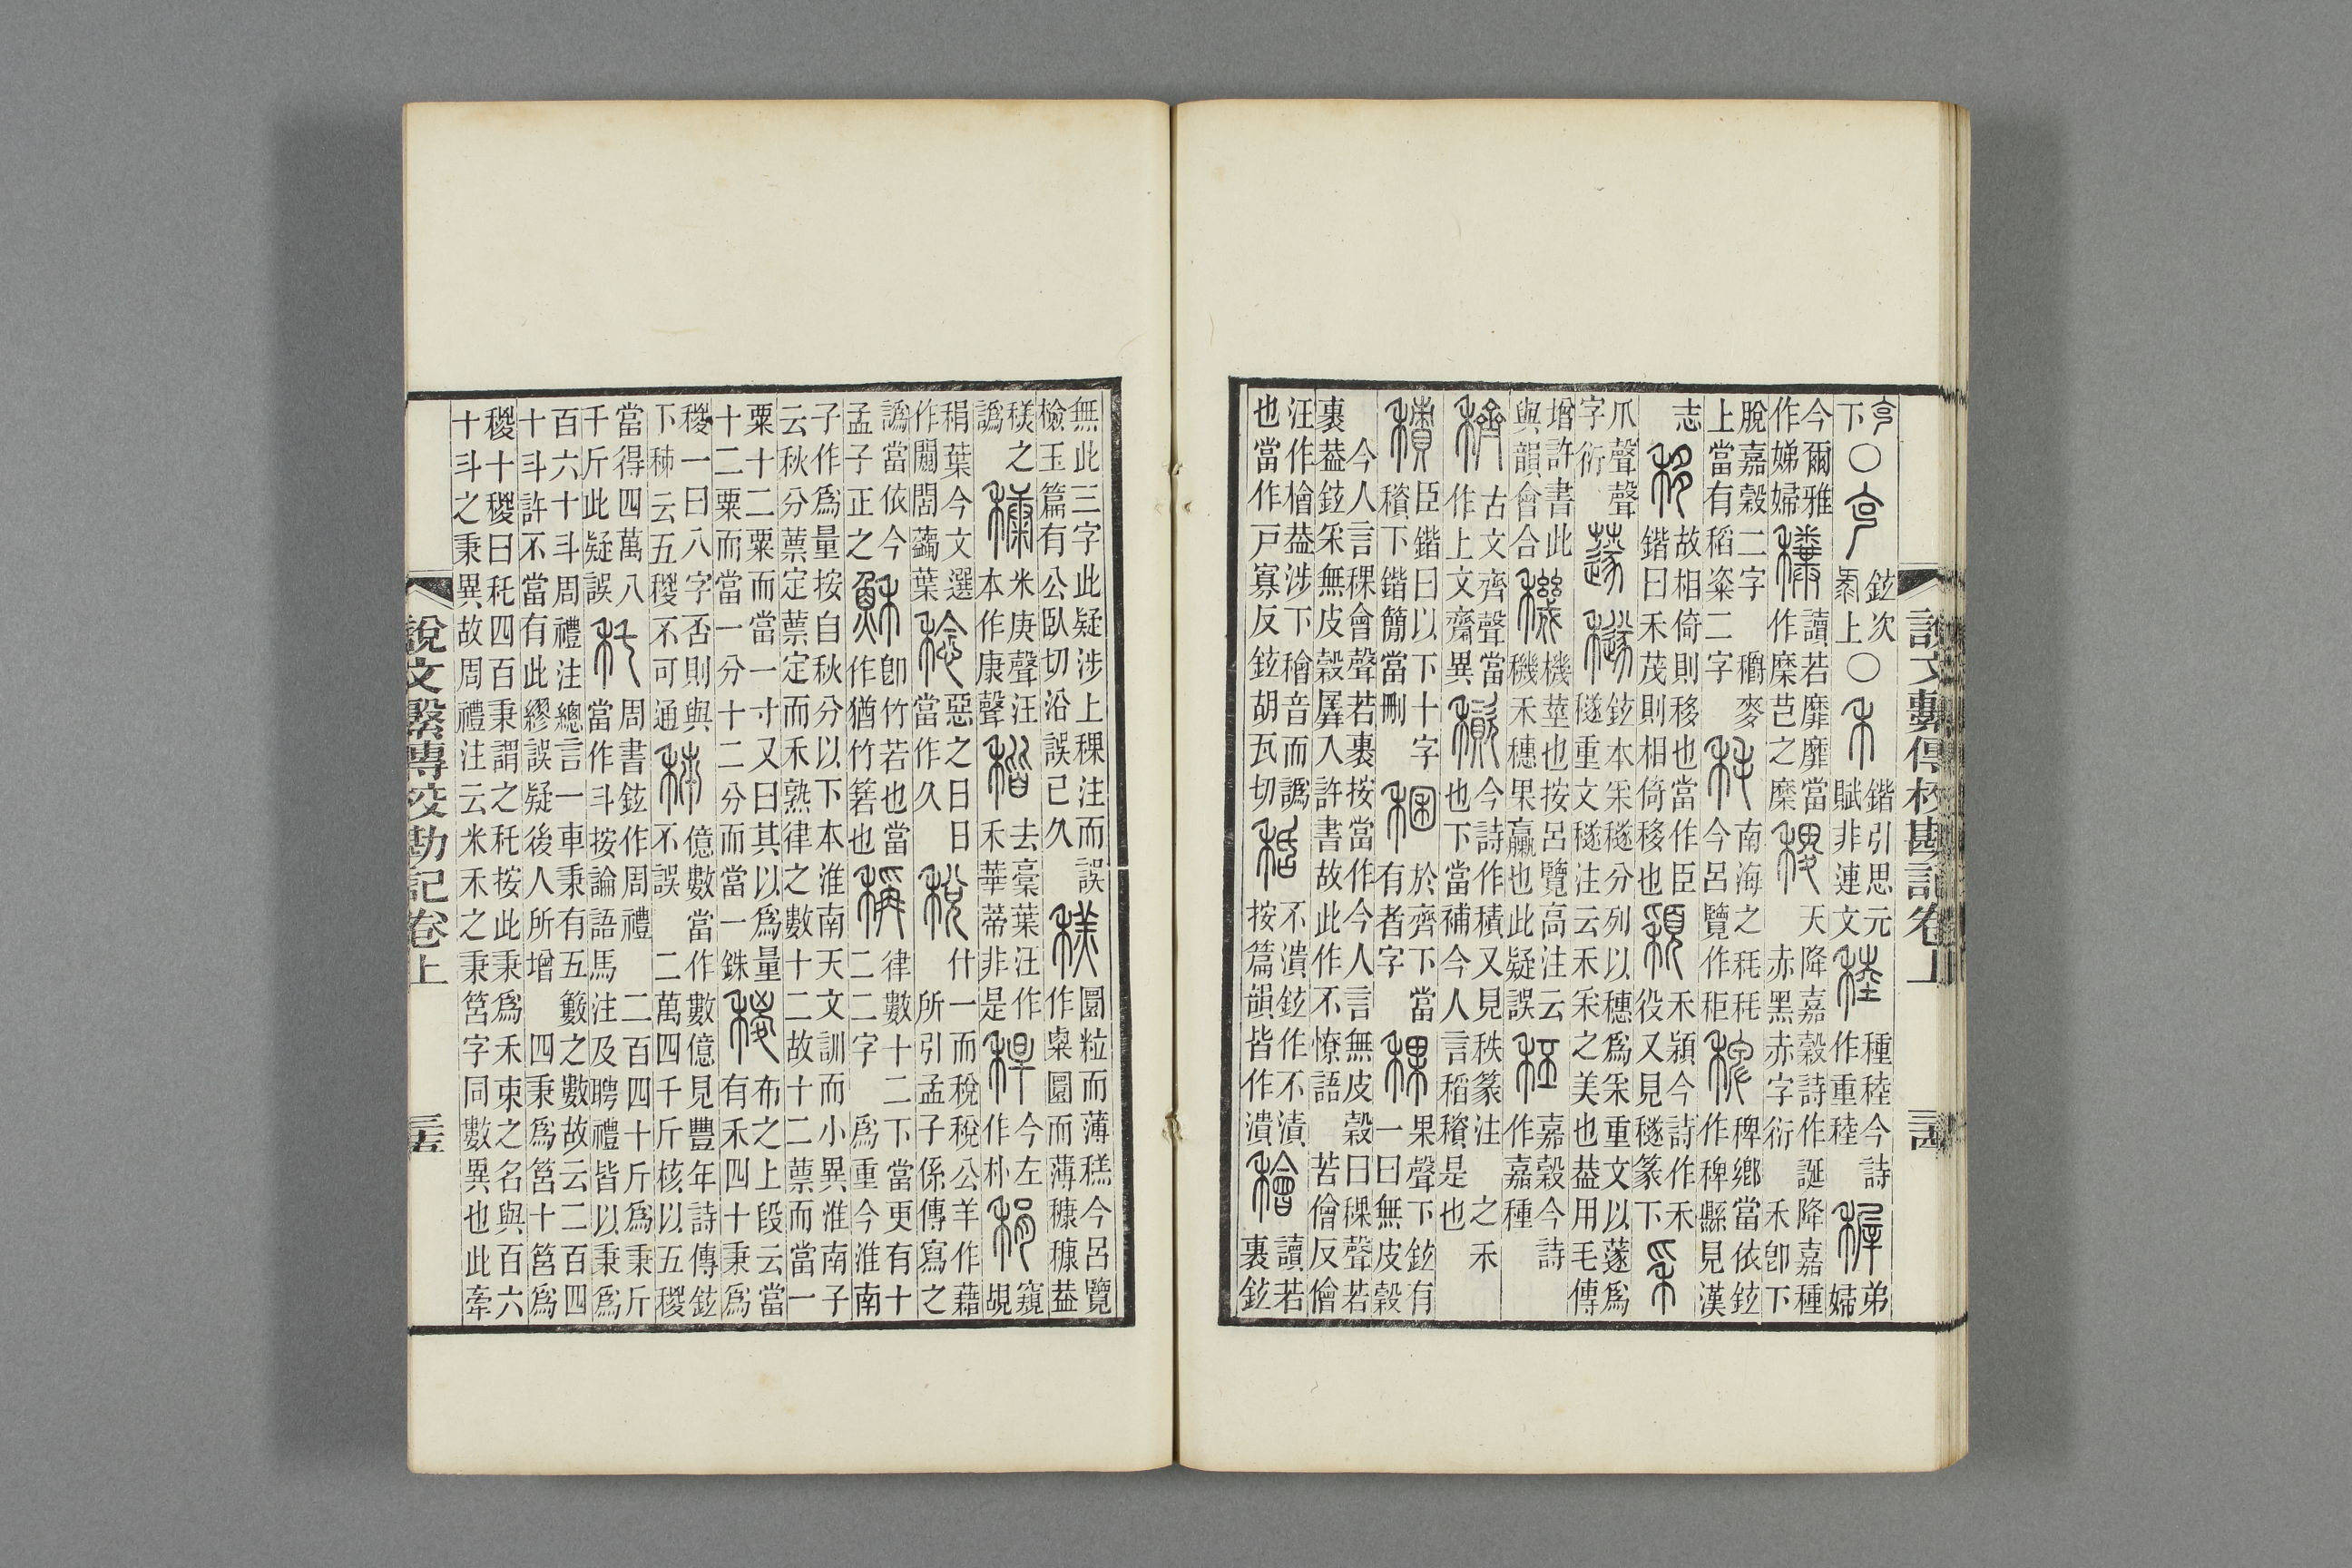 亯下〇亯鉉次黍上〇禾鍇引思元賦非連文稑種稑今詩作重稑稺弟婦
今爾雅作娣婦穈讀若靡靡當作穈芑之穈稷天降嘉穀詩作誕降嘉種赤黑赤字衍 禾卽下
脫嘉穀二字 穱麥上當有稻粢二字秏南海之秏秏今呂覽作秬稗鄉當依鉉作稗縣見漢
志移故相倚則移也當作臣鍇曰禾茂則相倚移也穎禾穎今詩作禾役又見穟篆下采
爪聲聲字衍蓫穟鉉本采穟分列以穗爲采重文以蓫爲穟重文穟注云禾采之美也葢用毛傳
增許書此與韻會合穖機莖也按呂覽高注云穖禾穗果臝也此疑誤秠嘉穀今詩作嘉種
穧古文齊聲當作上文齋異今詩作積又見秩篆注 之禾也下當補今人言稻穧是也
積臣鍇曰以下十字穧下鍇簡當刪稛於齊下當有者字稞果聲下鉉有一曰無皮穀
今人言稞會聲若裹按當作今人言無皮穀曰稞聲若裹葢鉉采無皮穀羼入許書故此作不憭語 若儈反儈
汪作檜葢涉下穭音而譌也當作戸寡反鉉胡瓦切秳不潰鉉作不漬按篇韻皆作潰穭讀若裹鉉
說文繫傳校勘記卷上 三十四
無此三字此疑涉上稞注而誤檢玉篇有公臥切沿誤已久糕圜粒而薄糕今呂覽作㮚圜而薄穅穅葢
糕之譌穅米庚聲汪本作康聲稭去藁葉汪作禾華蒂非是稈今左作朴稍窺覘
稍葉今文選作關閻蘜葉稔惡之日日當作久稅什一而稅稅公羊作藉所引孟子係傳寫之
譌當依今孟子正之穌卽竹若也當作猶竹箬也稱律數十二下當更有十二二字 爲重今淮南
子作爲量按自秋分以下本淮南天文訓而小異淮南子云秋分蔈定蔈定而禾熟律之數十二故十二蔈而當一
粟十二粟而當一寸又曰其以爲量十二粟而當一分十二分而當一銖稯布之上段云當有禾四十秉爲
稯一曰八字否則與下秭云五稯不可通秭億數當作數億見豐年詩傳鉉不誤 二萬四千斤核以五稯
當得四萬八千斤此疑誤秅周書鉉作周禮 二百四十斤爲秉斤當作斗按論語馬注及聘禮皆以秉爲
百六十斗周禮注總言一車秉有五籔之數故云二百四十斗許不當有此繆誤疑後人所增 四秉爲筥十筥爲
稯十稯曰秅四百秉謂之秅按此秉爲禾束之名與百六十斗之秉異故周禮注云米禾之秉筥字同數異也此牽
說文繫傳校勘記卷上 三十五